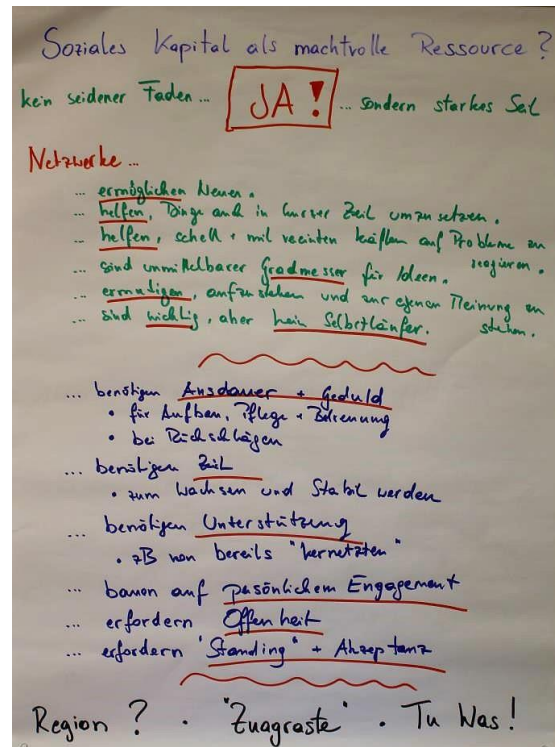 Soziales Kapital als machtvolle Ressource?
kein seidener Faden... JA! ... sondern starkes Seil
Netzwerke ...
... ermöglichen Neues.
... helfen, Dinge auch in kurzer Zeit umzusetzen.
... helfen, schell + mit vereinten Kräften auf Probleme zu
reagieren.
... sind unmittelbarer Gradmesser für Ideen.
... ermutigen, aufzustehen und zur eigenen Meinung zu
stehen.
... sind wichtig, aber kein Selbstläufer.
... benötigen Ausdauer + Geduld
• für Aufbau, Pflege + Betreuung
• bei Rückschlägen
... benötigen Zeit
• zum Wachsen und Stabil werden
... benötigen Unterstützung
• zB von bereits "Vernetzten"
... bauen auf persönlichem Engagement
... erfordern Offenheit
... erfordern "Standing" + Akzeptanz
Region? · "Zuagraste" · Tu Was!